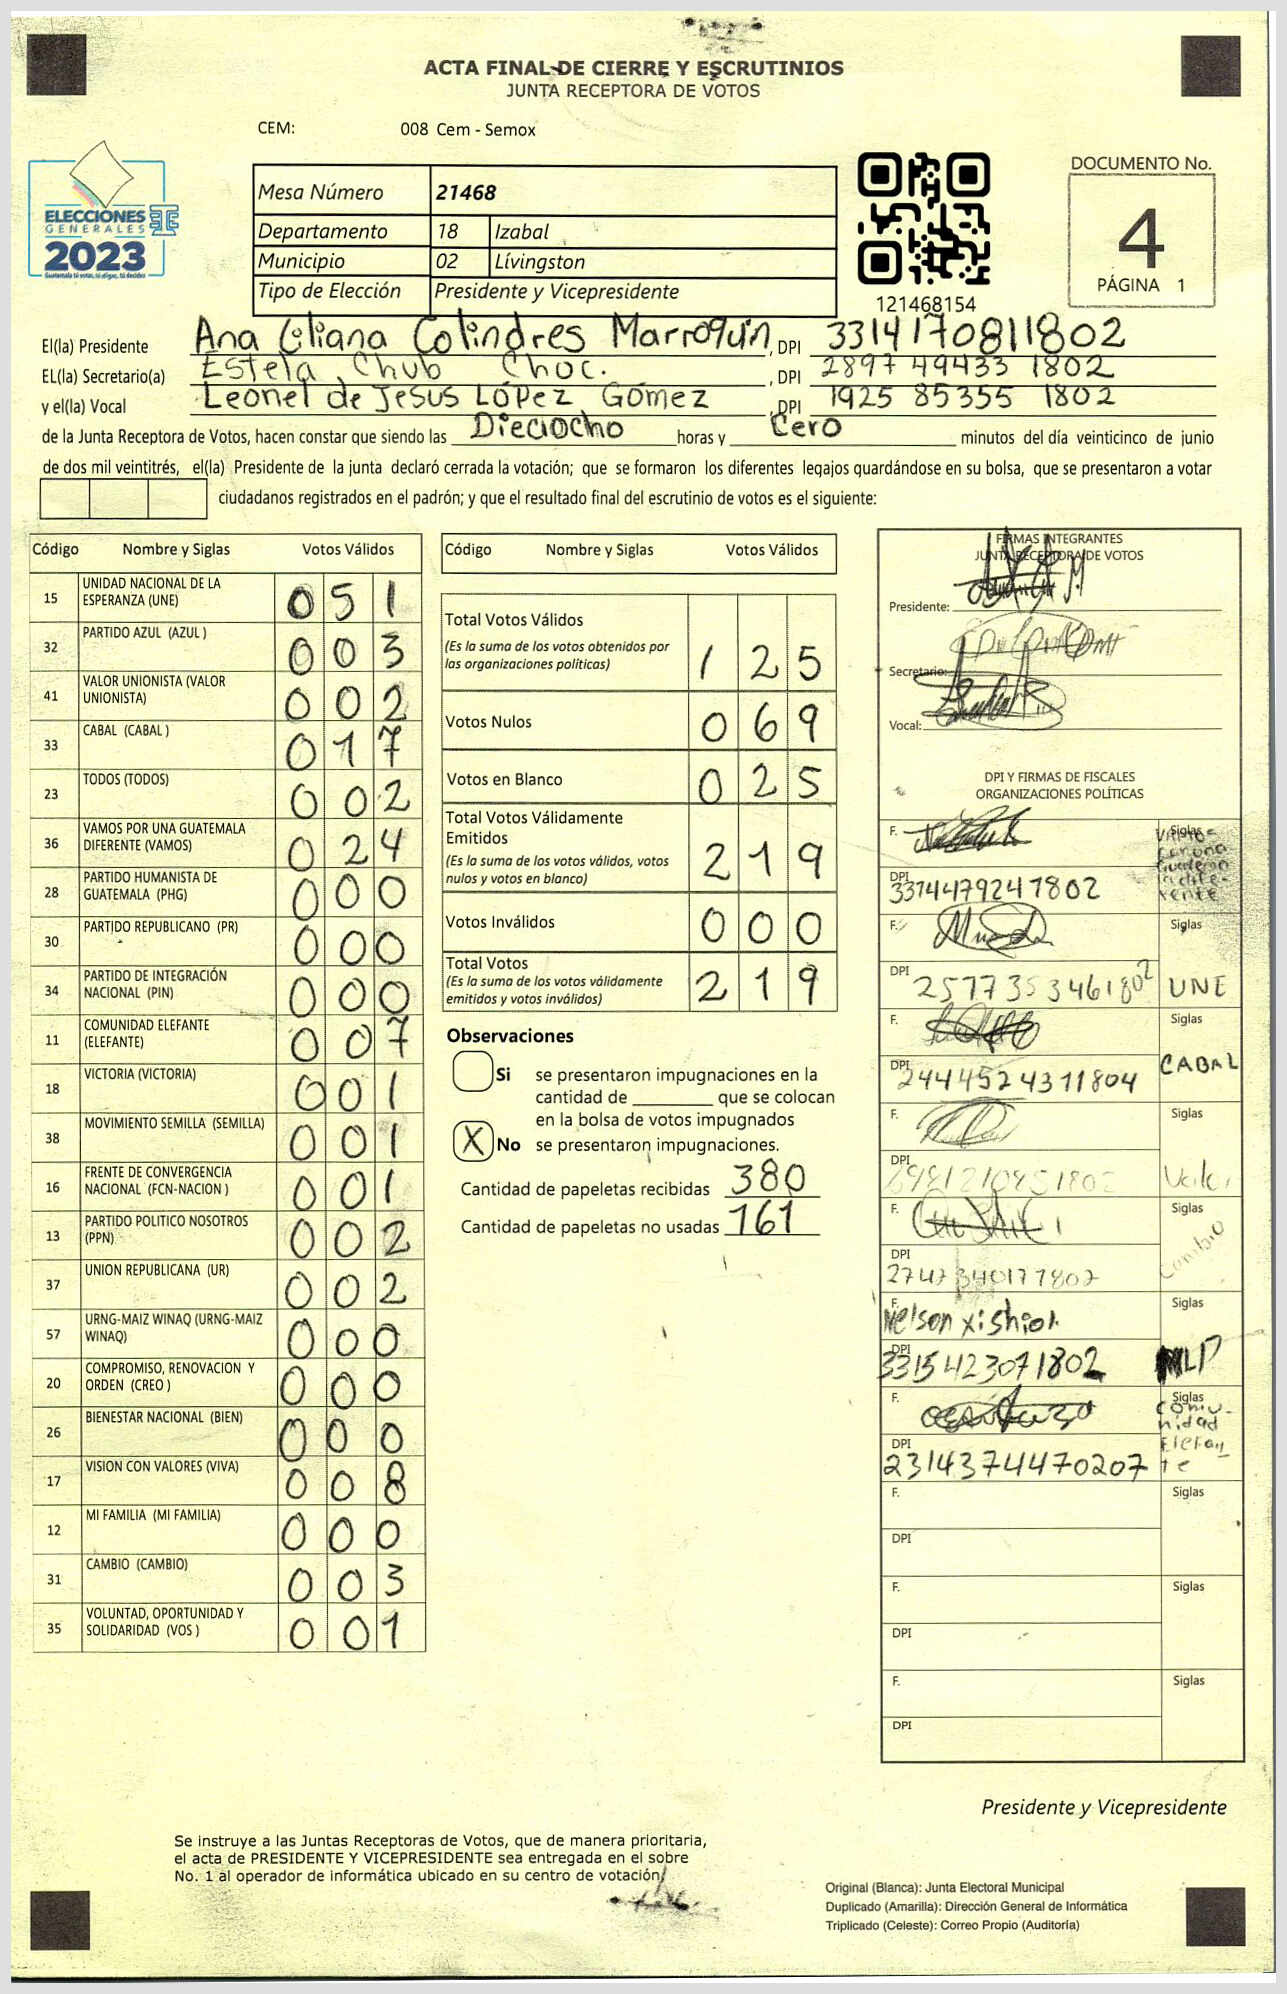 ACTA FINAL DE CIERRE Y ESCRUTINIOS
JUNTA RECEPTORA DE VOTOS
CEM: 008 Cem - Semox
ELECCIONES
GENERALES
2023
Guatemala tú votas, tú eliges, tú decides
Mesa Número 21468
Departamento 18 Izabal
Municipio 02 Lívingston
Tipo de Elección Presidente y Vicepresidente
121468154
DOCUMENTO No.
4
PÁGINA 1
El(la) Presidente Ana Liliana Colindres Marroquin, DPI 3314170811802
EL(la) Secretario(a) Estela Chub Choc. , DPI 2897 49433 1802
y el(la) Vocal Leonel de Jesus López Gómez , DPI 1925 85355 1802
de la Junta Receptora de Votos, hacen constar que siendo las Dieciocho horas y Cero minutos del día veinticinco de junio
de dos mil veintitrés, el(la) Presidente de la junta declaró cerrada la votación; que se formaron los diferentes legajos guardándose en su bolsa, que se presentaron a votar
ciudadanos registrados en el padrón; y que el resultado final del escrutinio de votos es el siguiente:
Código Nombre y Siglas Votos Válidos
15 UNIDAD NACIONAL DE LA ESPERANZA (UNE) 051
32 PARTIDO AZUL (AZUL ) 003
41 VALOR UNIONISTA (VALOR UNIONISTA) 002
33 CABAL (CABAL ) 017
23 TODOS (TODOS) 002
36 VAMOS POR UNA GUATEMALA DIFERENTE (VAMOS) 024
28 PARTIDO HUMANISTA DE GUATEMALA (PHG) 000
30 PARTIDO REPUBLICANO (PR) 000
34 PARTIDO DE INTEGRACIÓN NACIONAL (PIN) 000
11 COMUNIDAD ELEFANTE (ELEFANTE) 007
18 VICTORIA (VICTORIA) 001
38 MOVIMIENTO SEMILLA (SEMILLA) 001
16 FRENTE DE CONVERGENCIA NACIONAL (FCN-NACION ) 001
13 PARTIDO POLITICO NOSOTROS (PPN) 002
37 UNION REPUBLICANA (UR) 002
57 URNG-MAIZ WINAQ (URNG-MAIZ WINAQ) 000
20 COMPROMISO, RENOVACION Y ORDEN (CREO ) 000
26 BIENESTAR NACIONAL (BIEN) 000
17 VISION CON VALORES (VIVA) 008
12 MI FAMILIA (MI FAMILIA) 000
31 CAMBIO (CAMBIO) 003
35 VOLUNTAD, OPORTUNIDAD Y SOLIDARIDAD (VOS ) 001
Código Nombre y Siglas Votos Válidos
Total Votos Válidos
(Es la suma de los votos obtenidos por
las organizaciones políticas) 125
Votos Nulos 069
Votos en Blanco 025
Total Votos Válidamente
Emitidos
(Es la suma de los votos válidos, votos
nulos y votos en blanco) 219
Votos Inválidos 000
Total Votos
(Es la suma de los votos válidamente
emitidos y votos inválidos) 219
Observaciones
Si se presentaron impugnaciones en la
cantidad de que se colocan
en la bolsa de votos impugnados
X No se presentaron impugnaciones.
Cantidad de papeletas recibidas 380
Cantidad de papeletas no usadas 161
FIRMAS INTEGRANTES
JUNTA RECEPTORA DE VOTOS
Presidente:
Secretario:
Vocal:
DPI Y FIRMAS DE FISCALES
ORGANIZACIONES POLÍTICAS
F. Siglas
DPI 3374479247802
F. Siglas
DPI 2577353461802 UNE
F. Siglas
DPI 2444524311804 CABAL
F. Siglas
DPI Valor
F. Siglas
DPI 2747340177802 Cambio
F. Nelson Siglas
DPI 3315423071802 MLP
F. Siglas
Comunidad Elefante
DPI 2314374470207
F. Siglas
DPI
F. Siglas
DPI
F. Siglas
DPI
Presidente y Vicepresidente
Se instruye a las Juntas Receptoras de Votos, que de manera prioritaria,
el acta de PRESIDENTE Y VICEPRESIDENTE sea entregada en el sobre
No. 1 al operador de informática ubicado en su centro de votación
Original (Blanca): Junta Electoral Municipal
Duplicado (Amarilla): Dirección General de Informática
Triplicado (Celeste): Correo Propio (Auditoría)